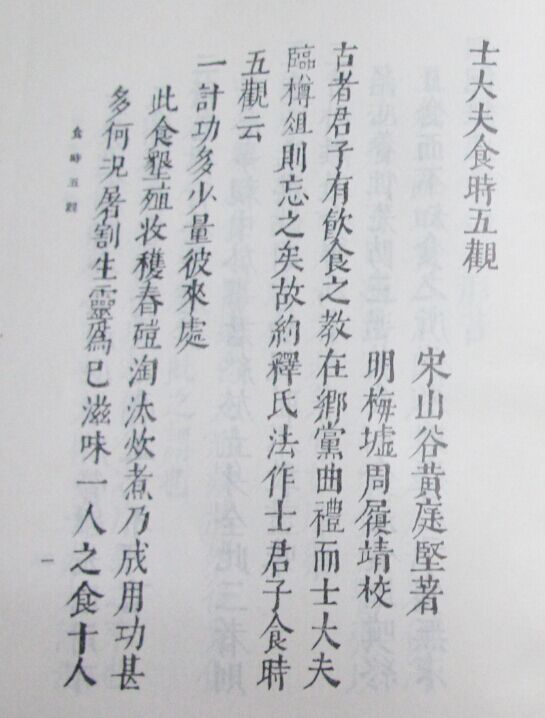 士大夫食時五觀
宋山谷黃庭堅著
明梅墟周履靖校
古者君子有飲食之教在鄉黨曲禮而士大夫
臨樽俎則忘之矣故約釋氏法作士君子食時
五觀云
一計功多少量彼來處
此食墾殖收穫舂磑淘汰炊煮乃成用功甚
多何況屠割生靈爲已滋味一人之食十人
食時五觀
一